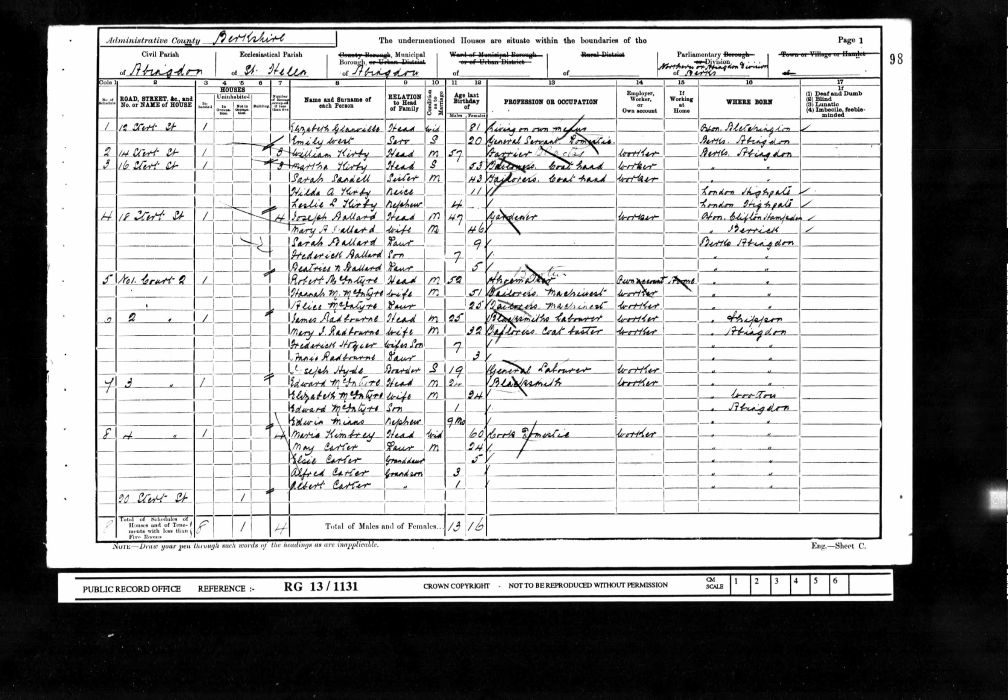 Administrative County Berkshire
The undermentioned Houses are situate within the boundaries of the
Page 1
98
Civil Parish
Ecclesiastical Parish
County Borough, Municipal Borough, or Urban District
Ward of Municipal Borough or of Urban District
Rural District
Parliamentary Borough or Division
Town or Village or Hamlet
of Abingdon
of St. Helen
of Abingdon
of
of
Northern or Abingdon Division of Berks
of
Cols 1 2 3 4 5 6 7 8 9 10 11 12 13 14 15 16 17
No. of Schedule
ROAD, STREET, &c., and No. or NAME of HOUSE
HOUSES
Uninhabited
Building
Name and Surname of each Person
RELATION to Head of Family
Condition as to Marriage
Age last Birthday of
Males Females
PROFESSION OR OCCUPATION
Employer, Worker, or Own account
If Working at Home
WHERE BORN
If (1) Deaf and Dumb (2) Blind (3) Lunatic (4) Imbecile, feeble-minded
1 12 Stert St 1 Elizabeth Glanville Head Wid 81 Living on own means Oxon. Bletchington
Emily West Serv S 20 General Servant Domestic Berks. Abingdon
2 14 Stert St 1 3 William Kirby Head M 57 worker Berks. Abingdon
3 16 Stert St 1 3 Martha Kirby Head S 53 Tailoress. Coat hand worker " "
Sarah Sandell Sister M 43 Tailoress. Coat hand worker " "
Hilda A. Kirby Neice 11 London Highgate
Leslie L Kirby Nephew 4 London Highgate
4 18 Stert St 1 4 Joseph Ballard Head M 47 Gardener worker Oxon. Clifton Hampden
Mary A Ballard Wife M 46 " Berrick
Sarah Ballard Daur 9 Berks Abingdon
Frederick Ballard Son 7 " "
Beatrice N Ballard Daur 5 " "
5 No1. Court 2 1 Robert McIntyre Head M 52 Shoemaker Own account Home " "
Hannah M. McIntyre Wife M 51 Tailoress. Machinest worker " "
Alice McIntyre Daur 25 Tailoress. Machinest worker " "
2 " 1 James Radbourne Head M 25 Blacksmiths Labourer worker " Shippon
Mary J. Radbourne Wife M 32 Tayloress. Coat baster worker " Abingdon
Frederick Hozier Wifes Son 7 " "
Annie Radbourne Daur 3 " "
Joseph Hyde Boarder S 19 General Labourer worker " "
7 3 " 1 Edward McIntyre Head M Blacksmith worker " "
Elizabeth McIntyre Wife M 24 " Wootton
Edward McIntyre Son 1 " Abingdon
Edwin Minns Nephew 9 Mo " "
8 4 " 1 4 Maria Kimbrey Head Wid 60 Cook Domestic worker " "
May Carter Daur M 24 " "
Elsie Carter Granddaur 5 " "
Alfred Carter Grandson 3 " "
Albert Carter " 1 " "
20 Stert St 1
8 Total of Schedules of Houses and of Tenements with less than Five Rooms 8 1 4 Total of Males and of Females... 13 16
NOTE—Draw your pen through such words of the headings as are inapplicable.
Eng.—Sheet C.
PUBLIC RECORD OFFICE REFERENCE :- RG 13 / 1131 CROWN COPYRIGHT - NOT TO BE REPRODUCED WITHOUT PERMISSION CM SCALE 1 2 3 4 5 6